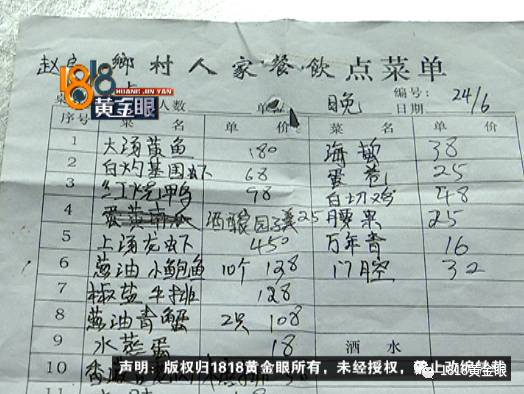 赵良 鄉村人家餐飲点菜单
1818
HUANG JIN YAN
黄金眼
桌 人数 单 晚 编号:
日期 24/6
序号 菜名 单价 菜名 单价
1 大汤黄鱼 180 海蜇 38
2 白灼基围虾 68 蛋卷 25
3 红烧甲鱼 98 白切鸡 48
4 蛋黄南瓜 酒酿园子羹25 腰果 25
5 上汤龙虾 450 万年青 16
6 葱油小鲍鱼 10个 128 门腔 32
7 椒盐牛排 128
8 葱油青蟹 2只 108
9 水蒸蛋 18 酒水
10
声明：版权归1818黄金眼所有，未经授权，禁止改编转载
1818黄金眼